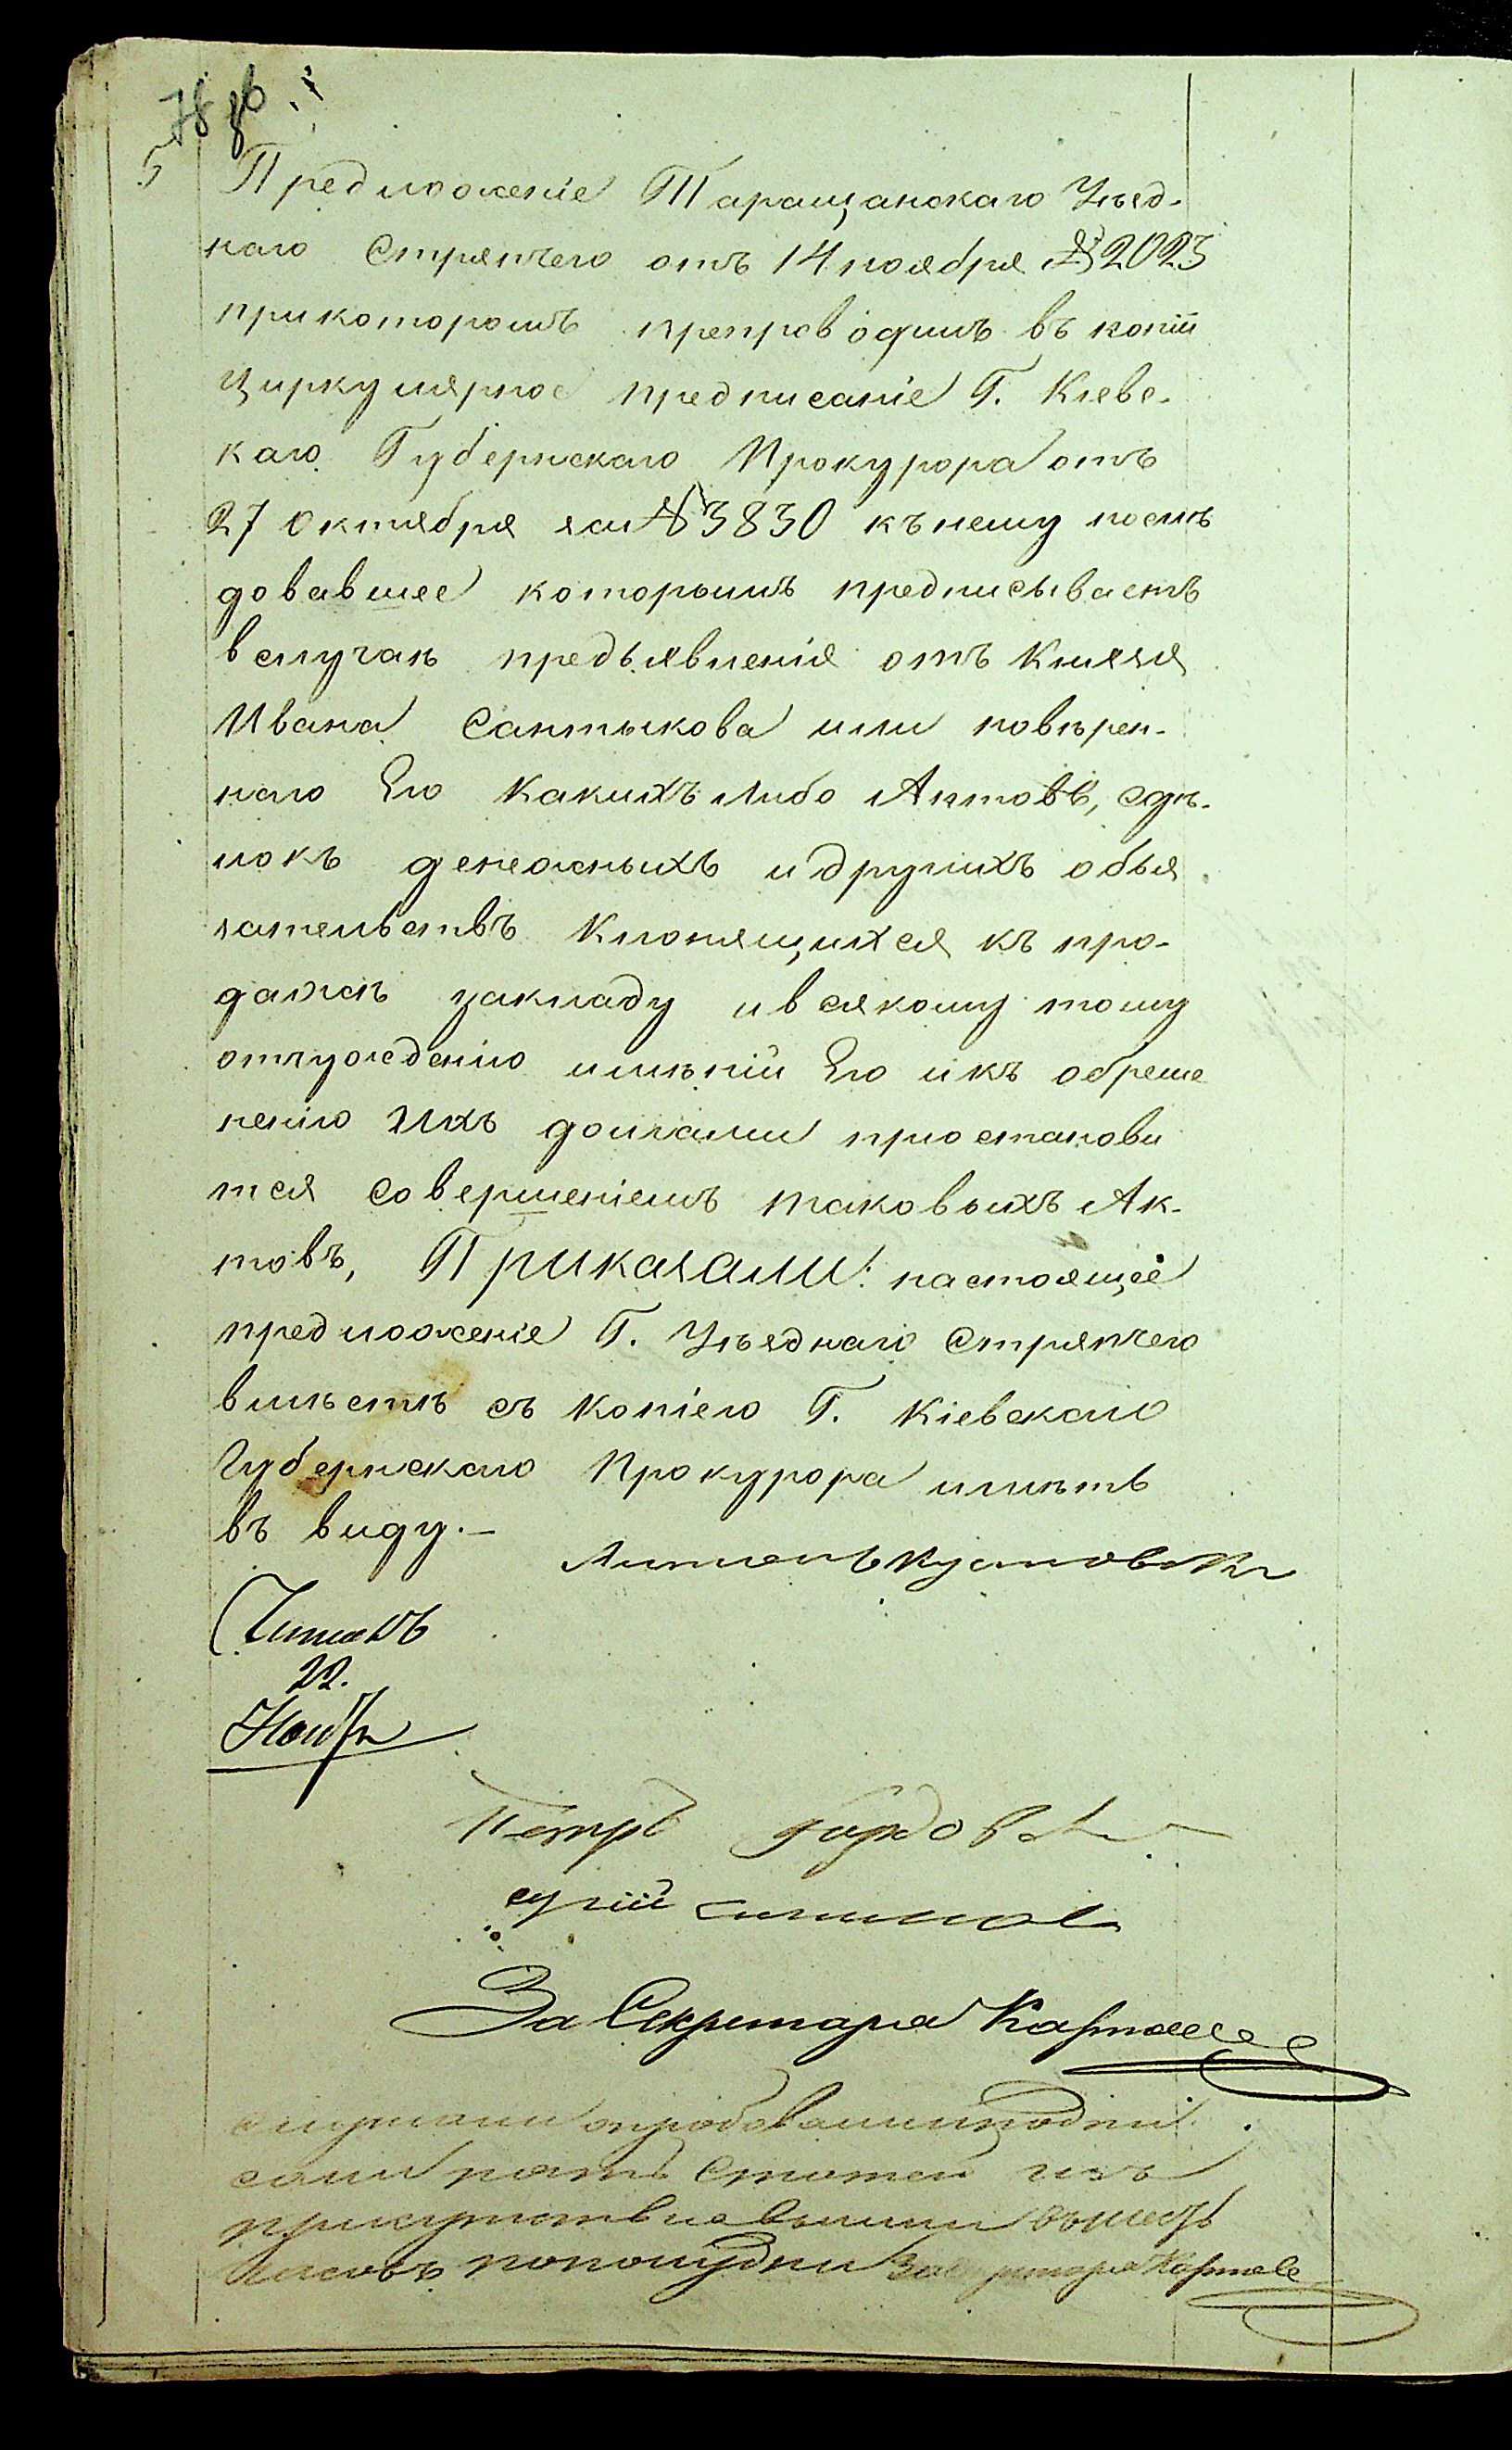 78 86
5 Предложеніе Таращанскаго Уѣзд-
наго Стряпчего отъ 14 ноября № 2023
прикоторомъ препроводилъ въ копіи
Циркулярное предписаніе Г. Киевс-
каго Губернскаго Прокурора отъ
27 Октября за № 3830 къ нему послѣ
довавшее которымъ предписываетъ
вслучаѣ предъявленія отъ Князя
Ивана Салтыкова или повѣрен-
наго Его какихъ либо Актовъ, сдѣ-
локъ денежныхъ и другихъ обья
зательствъ клонящихся къ про-
дажѣ закладу и всякому тому
отчужденію имѣній Его и къ обреме
ненію Ихъ долгами приостанови
тся совершеніемъ таковыхъ Ак-
товъ, Приказали: настоящее
предложеніе Г. Уѣзднаго Стряпчего
вмѣстѣ съ копіею Г. Кіевскаго
Губернскаго Прокурора имѣть
въ виду.-
Читалъ
22.
Ноября
Петръ
За Секретаря
слушали опробовали и подпи
сали пять статей изъ
присутствия вышли въ
часовъ пополудни За Секретаря